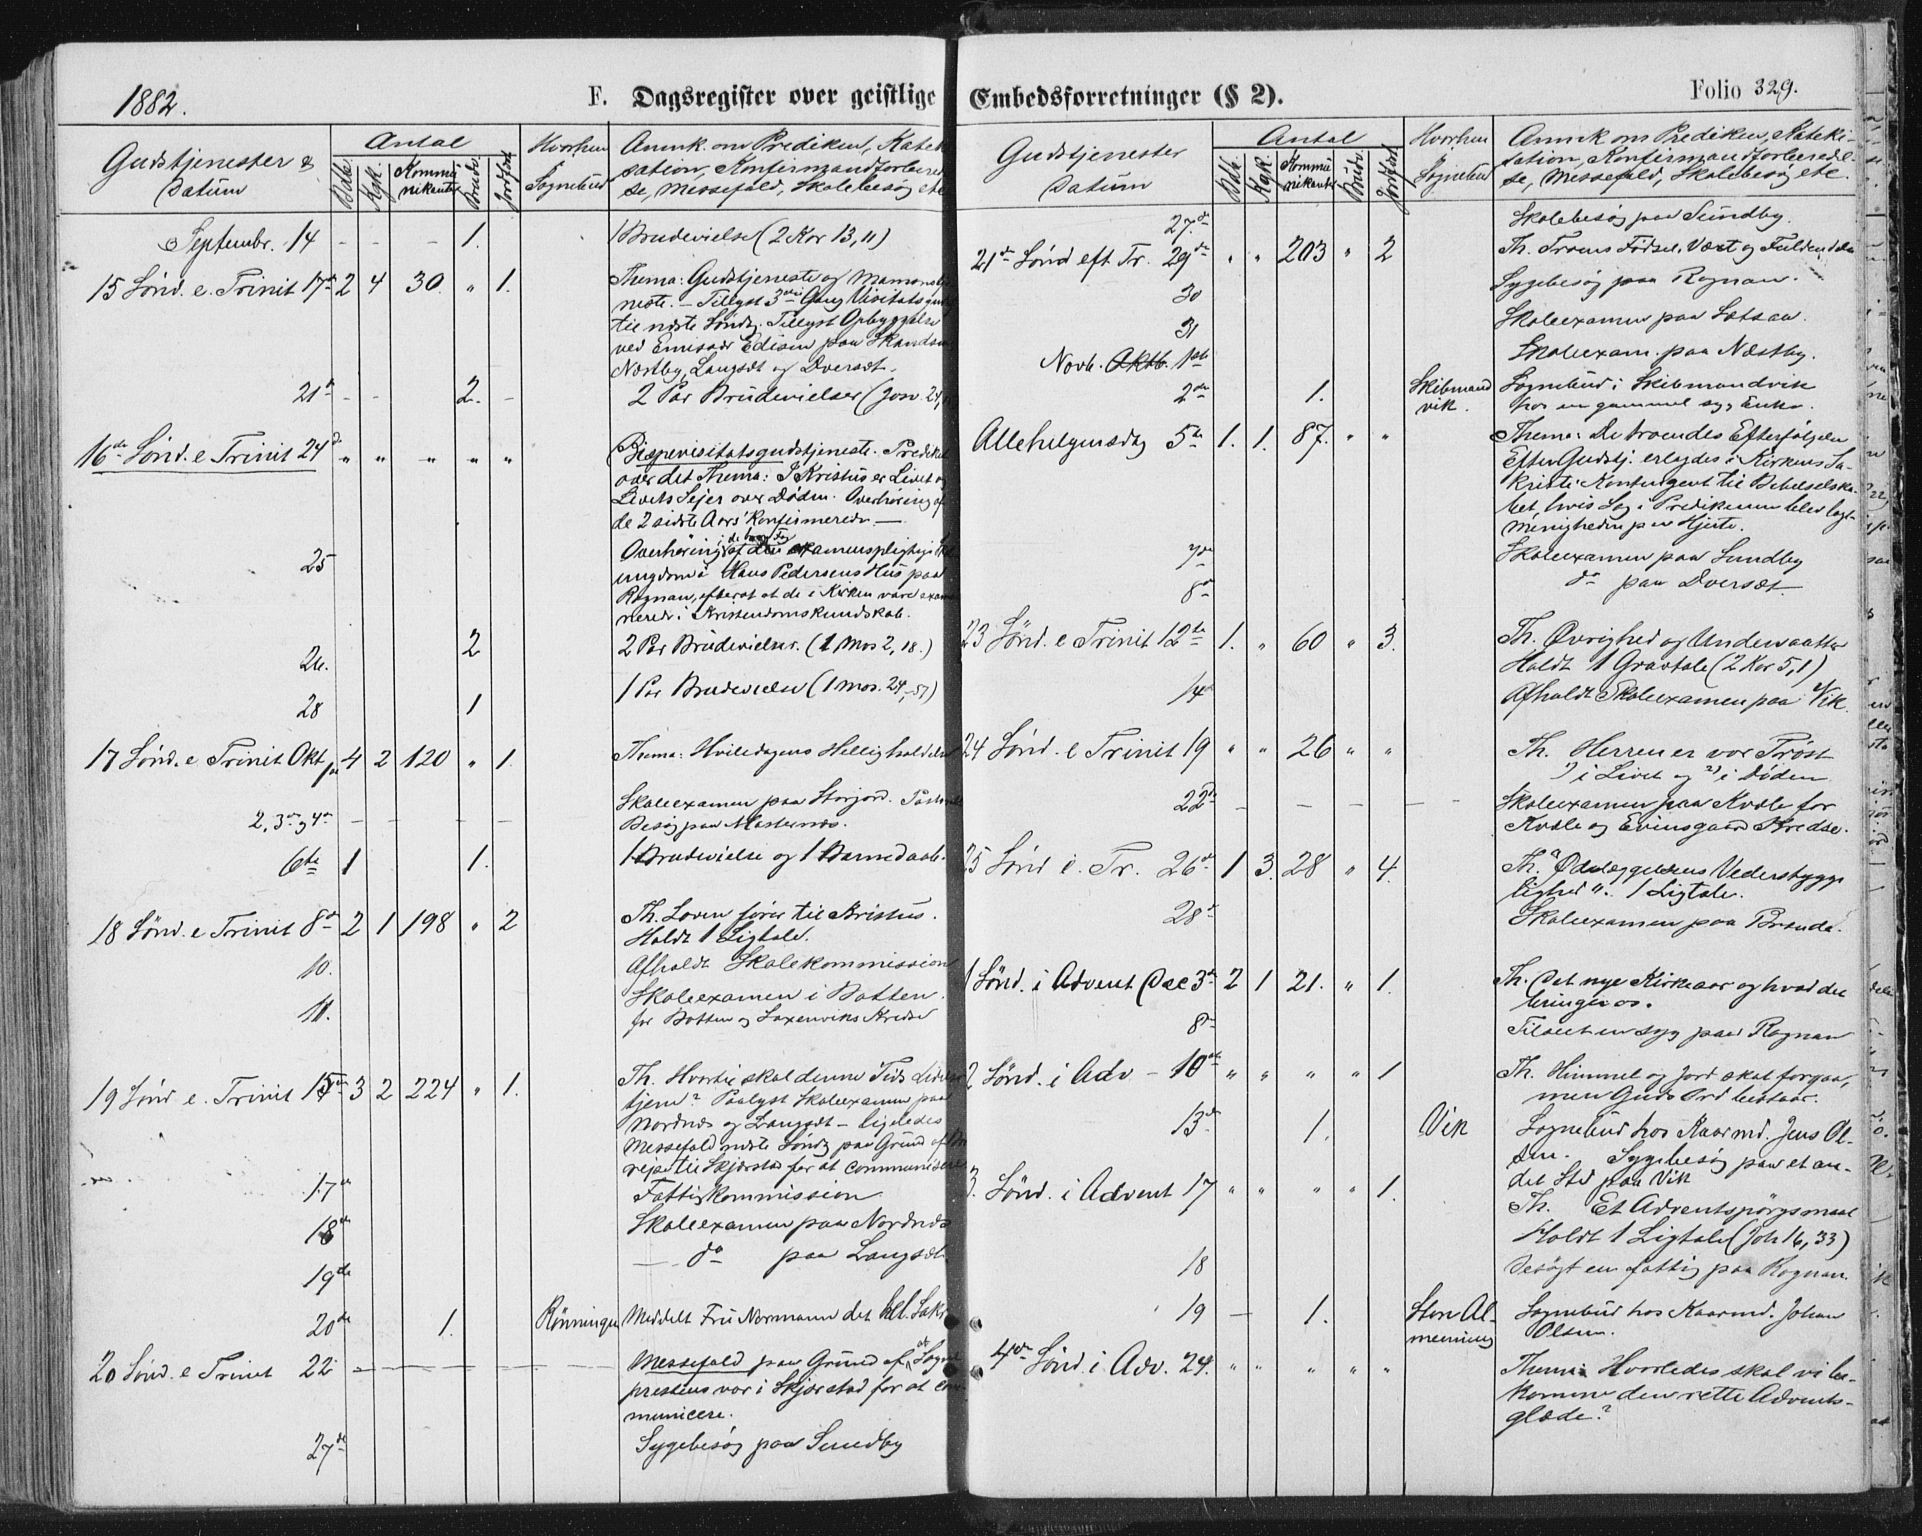 1882.
F. Dagsregister over geistlige
Gudstjenester &
Datum
Antal
Kommu
nikanter
Hvorhen
Sognebud
Anmk. om Prediken, Kateki
sation, Konfirmandforbere
se, Messefald, Skolebesøg etc
Septembr. 14 - - - 1. 1 Brudevielse (2 Kor 13, 11)
15 Sønd. e. Trinit 17de 2 4 30 " 1. Thema: Gudstjeneste og Mamonstje
neste. - Tillyst 3die Gang Visitatsgudstj
til næste Søndg. Tillyst Opbyggelse
ved Emissær Edisen paa Skandsen
Næstby, Langsæt og Dversæt.
21de - - 2. - 2 Par Brudevielser (Jos. 24,15
16de Sønd. e Trinit 24de " " " " " Bispevisitatsgudstjeneste. Prediket
over det Thema: I Kristus er Livet og
Livets Sejer over Døden. Overhøring af
de 2 sidste Aars' Konfirmerede —
25 Overhøring i de Fag af den examenspligtige Skol
ungdom i Hans Pedersens Hus paa
Rognan, efterat de i Kirken vare exami
nerede i Kristendomskundskab.
26. 2 2 Par Brudevielser. (1 Mos 2, 18.)
28 1 1 Par Brudevielse (1 Mos. 24,-51)
17 Sønd. e Trinit Okt 1ste 4 2 120 " 1. Thema: Hviledagens Helligholdelse
2, 3die og 4de - - - - - Skoleexamen paa Storjord.
Besøg paa
6te 1 1. 1 Brudevielse og 1 Barnedaab.
18 Sønd. e Trinit 8de 2 1 198 " 2 Th. Loven fører til Kristus.
Holdt 1 Ligtale.
10. Afholdt Skolekommission
11. Skoleexamen i Botten
for Botten og Saxenviks Kredse
19 Sønd e. Trinit 15de 3 2 224 " 1. Th. Hvortil skal denne Tids Lidelse
tjene? Paalyst Skoleexamen paa
Nordnæs og Langsæt - ligeledes
Messefald næste Søndg paa Grund af
rejse til Skjerstad for at communicere
17de Fattigkommission
18de Skoleexamen paa Nordnæs
19de — do paa Langsæt
20de 1. Rønningen Meddelt Fru Normann det hel. Sakr
20 Sønd. e Trinit 22 - - - - - Messefald paa Grund af, at Sogne
presten var i Skjerstad for at com
municere.
27de Sygebesøg paa Sundby
Embedsforretninger (§ 2).
Folio 329.
Gudstjenester
Datum
Antal
Kommu
nikanter
Hvorhen
Sognebud
Anmk om Prediken, Kateki-
sation, Konfirmandforberedel
se, Messefald, Skolebesøg etc.
27.de Skolebesøg paa Sundby.
21de Sønd eft Tr. 29de " " 203 " 2 Th. Troens Fødsel, Væxt og Fuldendelse
30 Sygebesøg paa Rognan.
31 Skoleexamen paa Sætsaa.
Novb. Oktb. 1ste Skoleexam. paa Næstby.
2den 1. Skibmand
vik. Sognebud i Skibmandvik
hos en gammel syg Enke.
Allehelgensdag 5te 1. 1. 87. " " Thema: De troendes Efterfølgelse
Efter Gudstj. erlagdes i Kirkens Sa-
kristi Kontingent til Bibelselska-
bet, hvis Sag i Predikenen blev lagt
Menigheden paa Hjerte.
7de Skoleexamen paa Sundby
8de do paa Dversæt.
23 Sønd. e Trinit 12te 1. " 60 " 3. Th. Øvrighed og Undersaatter
Holdt 1 Gravtale (2 Kor 5,1)
14de Afholdt Skoleexamen paa Vik.
24 Sønd. e Trinit 19 " " 26 " " Th. Herren er vor Trøst
1) i Livet og 2) i Døden
22de - - - - - Skoleexamen paa Kvæle for
Kvæle og Evensgaard Kredse.
25 Sønd e. Tr. 26de 1 3. 28 " 4. Th. "Ødelæggelsens Vederstygge
lighed". 1 Ligtale.
28de Skoleexamen paa Brænde.
1 Sønd. i Advent Dec 3de 2 1 21. " 1. Th. Det nye Kirkeaar og hvad det
bringer os.
8de Tilset en syg paa Rognan
2 Sønd. i Adv - 10de " " " " 1 Th. Himmel og Jord skal forgaa,
men Guds Ord bestaar.
13de 1. Vik Sognebud hos Kaarmd. Jens Ol-
sen. Sygebesøg paa et an-
det Sted paa Vik
3. Sønd. i Advent 17 " " " " 1. Th. Et Adventspørgsmaal
Holdt 1 Ligtale (Joh 16, 33)
18 Besøgt en fattig paa Rognan.
19 - 1. Storalmenning Sognebud hos Kaarmd. Johan
Olsen.
4de Sønd. i Adv. 24. " " " " " Thema: Hvorledes skal vi be-
komme den rette Advents-
glæde?